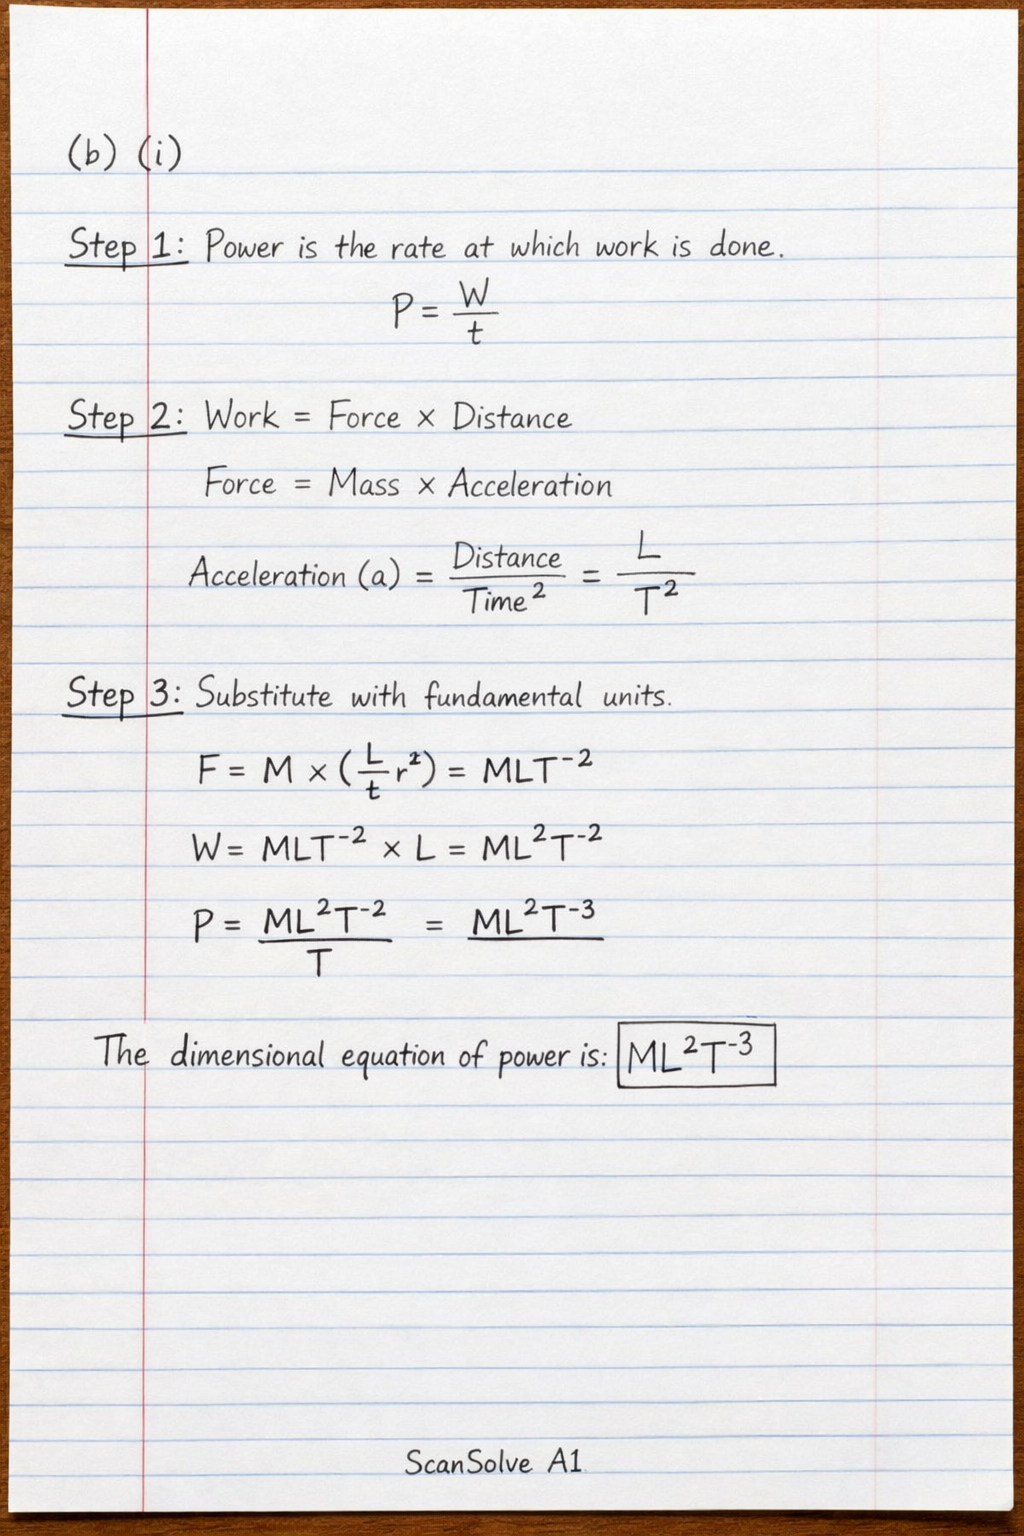 (b) (i)
Step 1: Power is the rate at which work is done.
P = W/t
Step 2: Work = Force × Distance
Force = Mass × Acceleration
Acceleration (a) = Distance/Time² = L/T²
Step 3: Substitute with fundamental units.
F = M × (L/t r²) = MLT⁻²
W = MLT⁻² × L = ML²T⁻²
P = ML²T⁻²/T = ML²T⁻³
The dimensional equation of power is: ML²T⁻³
ScanSolve A1